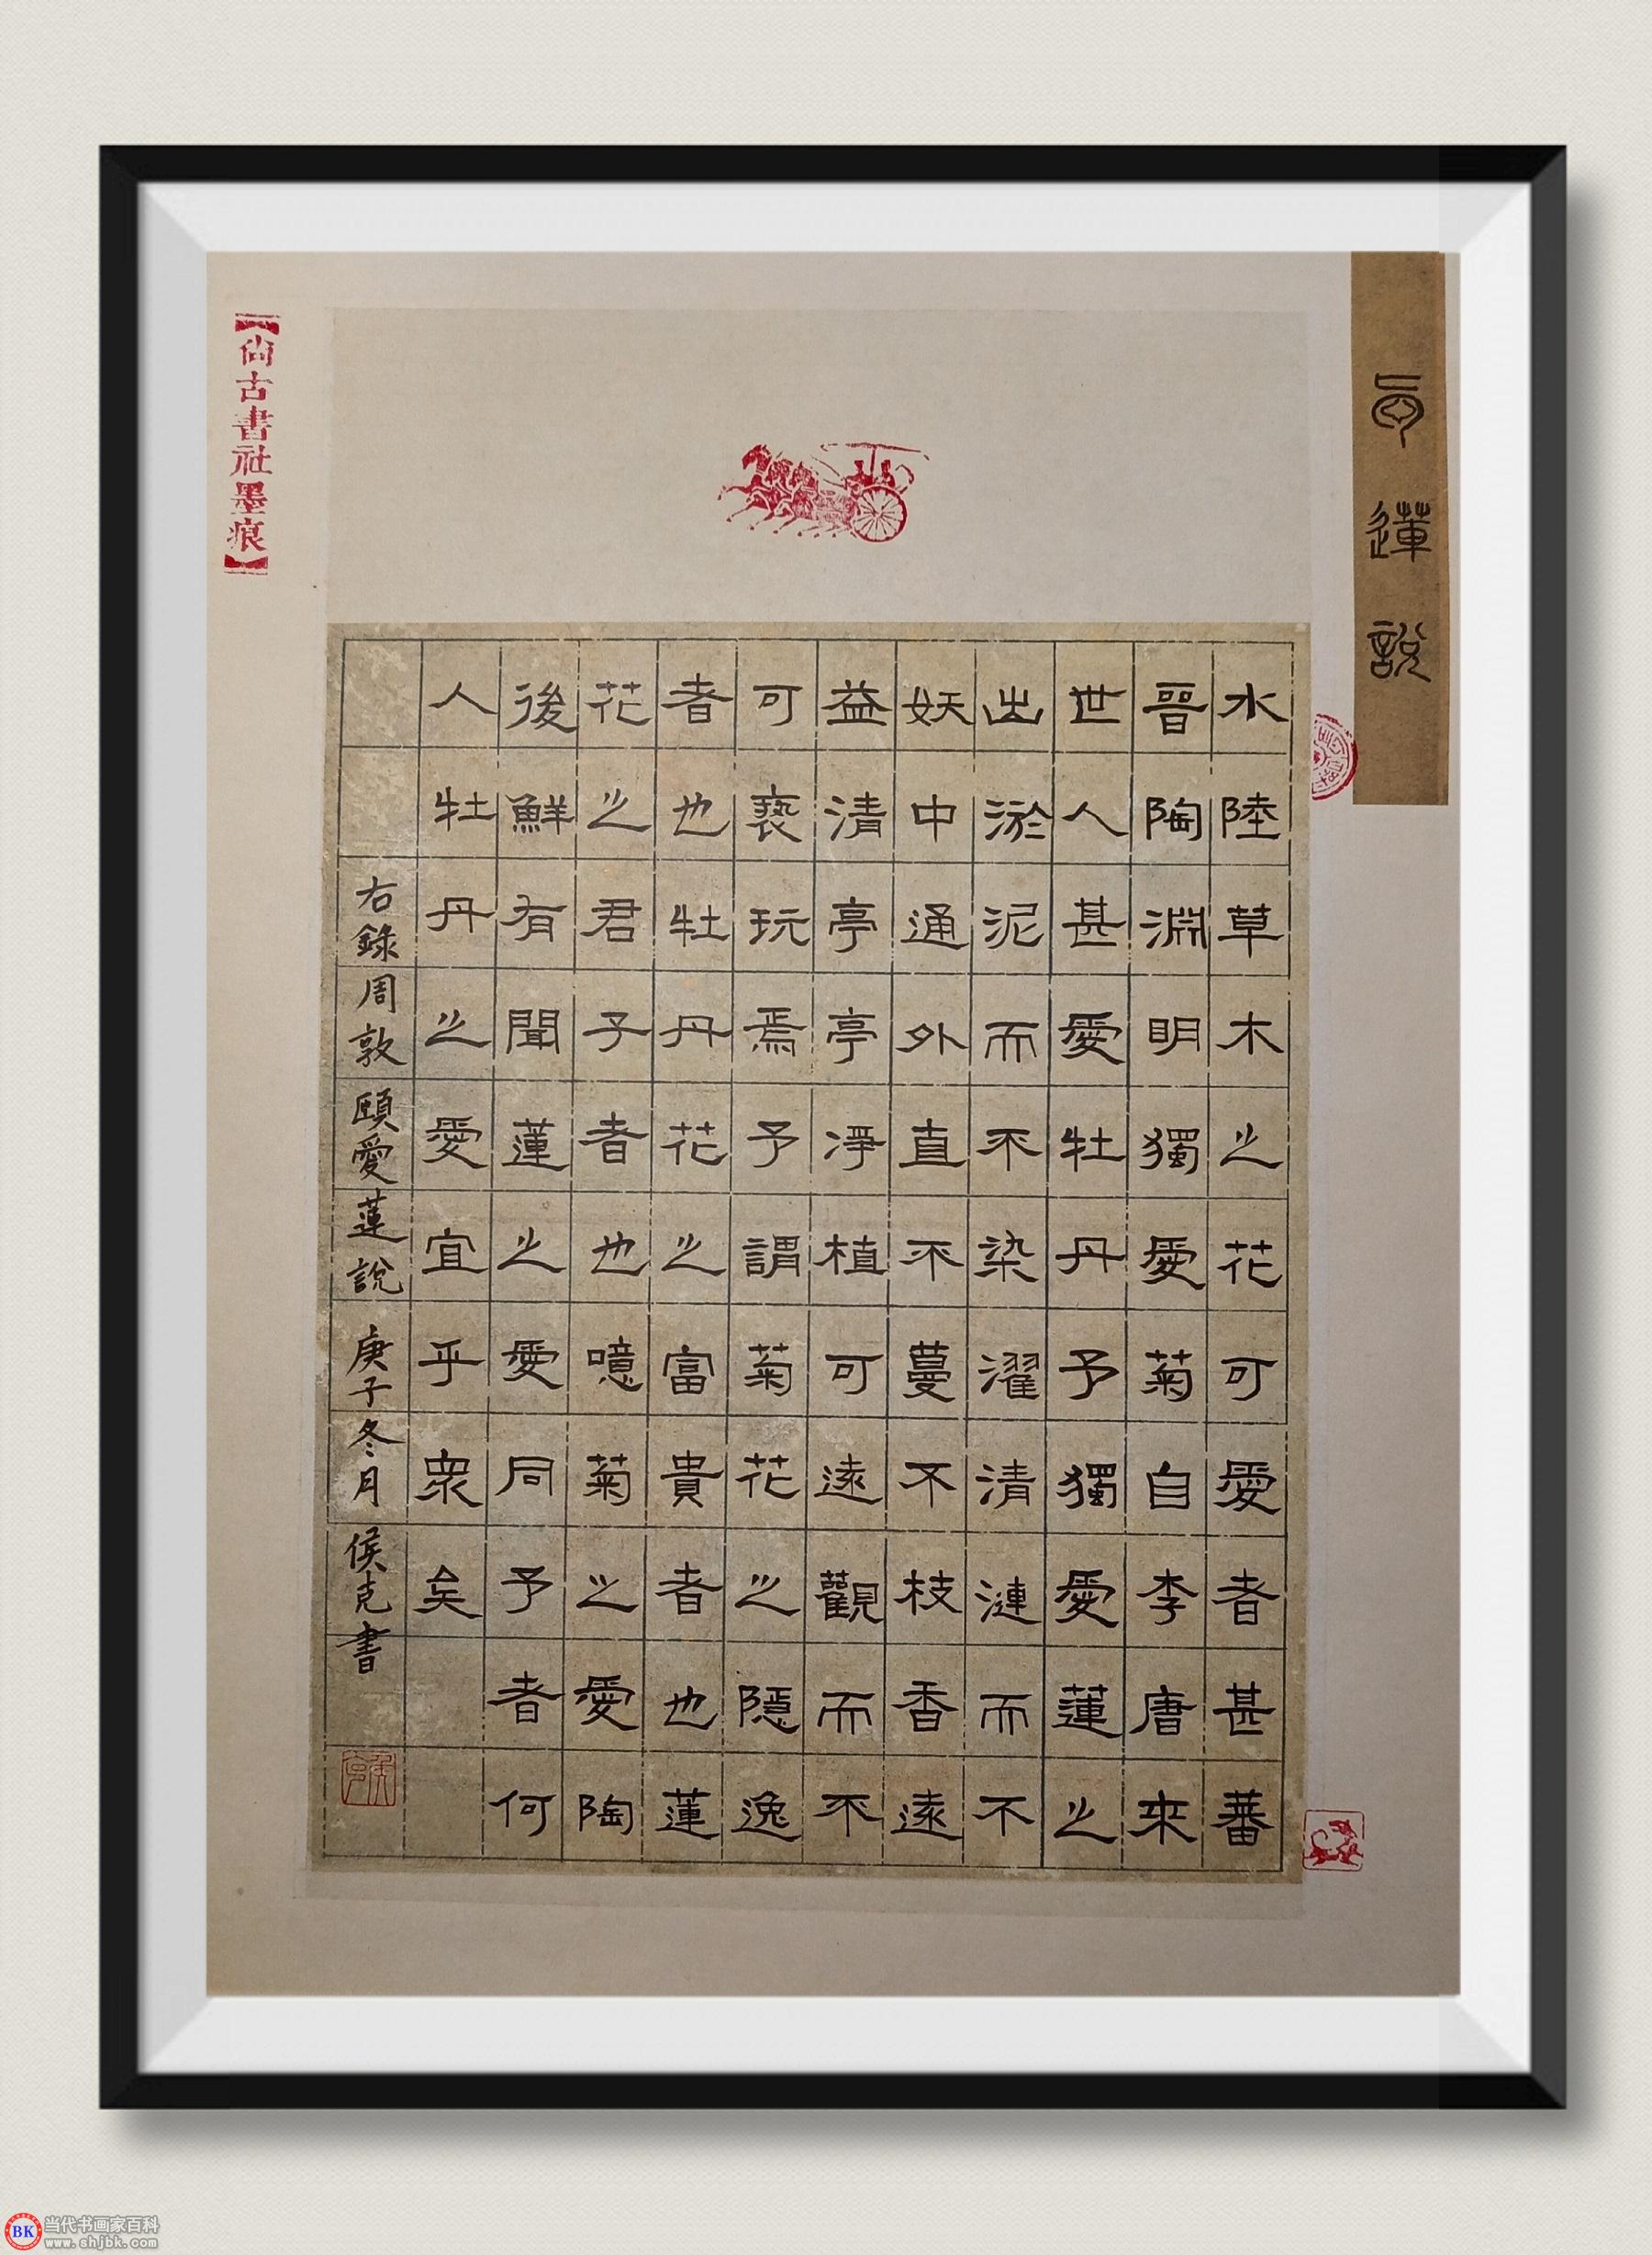 㤅蓮說
水陸草木之花可愛者甚蕃
晉陶淵明獨愛菊自李唐來
世人甚愛牡丹予獨愛蓮之
出淤泥而不染濯清漣而不
妖中通外直不蔓不枝香遠
益清亭亭淨植可遠觀而不
可褻玩焉予謂菊花之隱逸
者也牡丹花之富貴者也蓮
花之君子者也噫菊之愛陶
後鮮有聞蓮之愛同予者何
人牡丹之愛宜乎衆矣
右錄周敦頤愛蓮說 庚子冬月 侯克書
【尚古書社墨痕】
BK 当代书画家百科
www.shjbk.com